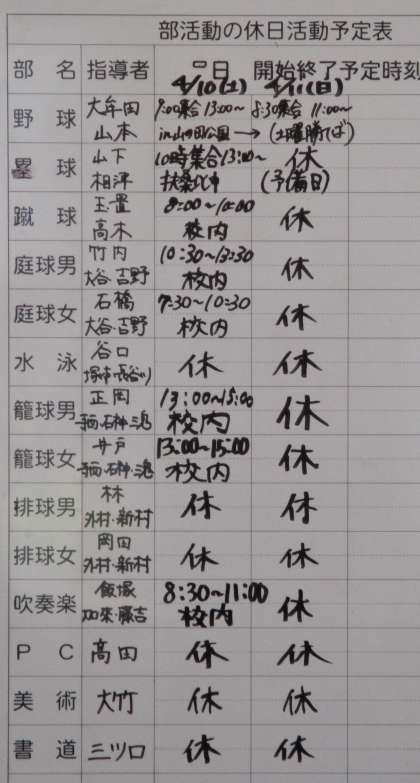 部活動の休日活動予定表
部 名 指導者 日 開始終了予定時刻
4/10(土) 4/11(日)
野 球 大牟田 9:00集合 13:00~ 8:30集合 11:00~
山本 → (土曜勝てば)
塁 球 山下 10時集合 13:00~ 休
相澤 (予備日)
蹴 球 玉置 8:00~10:00 休
高木 校内
庭球男 竹内 10:30~13:30 休
大谷・吉野 校内
庭球女 石橋 7:30~10:30 休
大谷・吉野 校内
水 泳 谷口 休 休
塚本・長谷川
籠球男 正岡 13:00~15:00 休
校内
籠球女 井戸 13:00~15:00 休
校内
排球男 林 休 休
外村・新村
排球女 岡田 休 休
外村・新村
吹奏楽 飯塚 8:30~11:00 休
加来・藤吉 校内
P C 高田 休 休
美 術 大竹 休 休
書 道 三ツ口 休 休